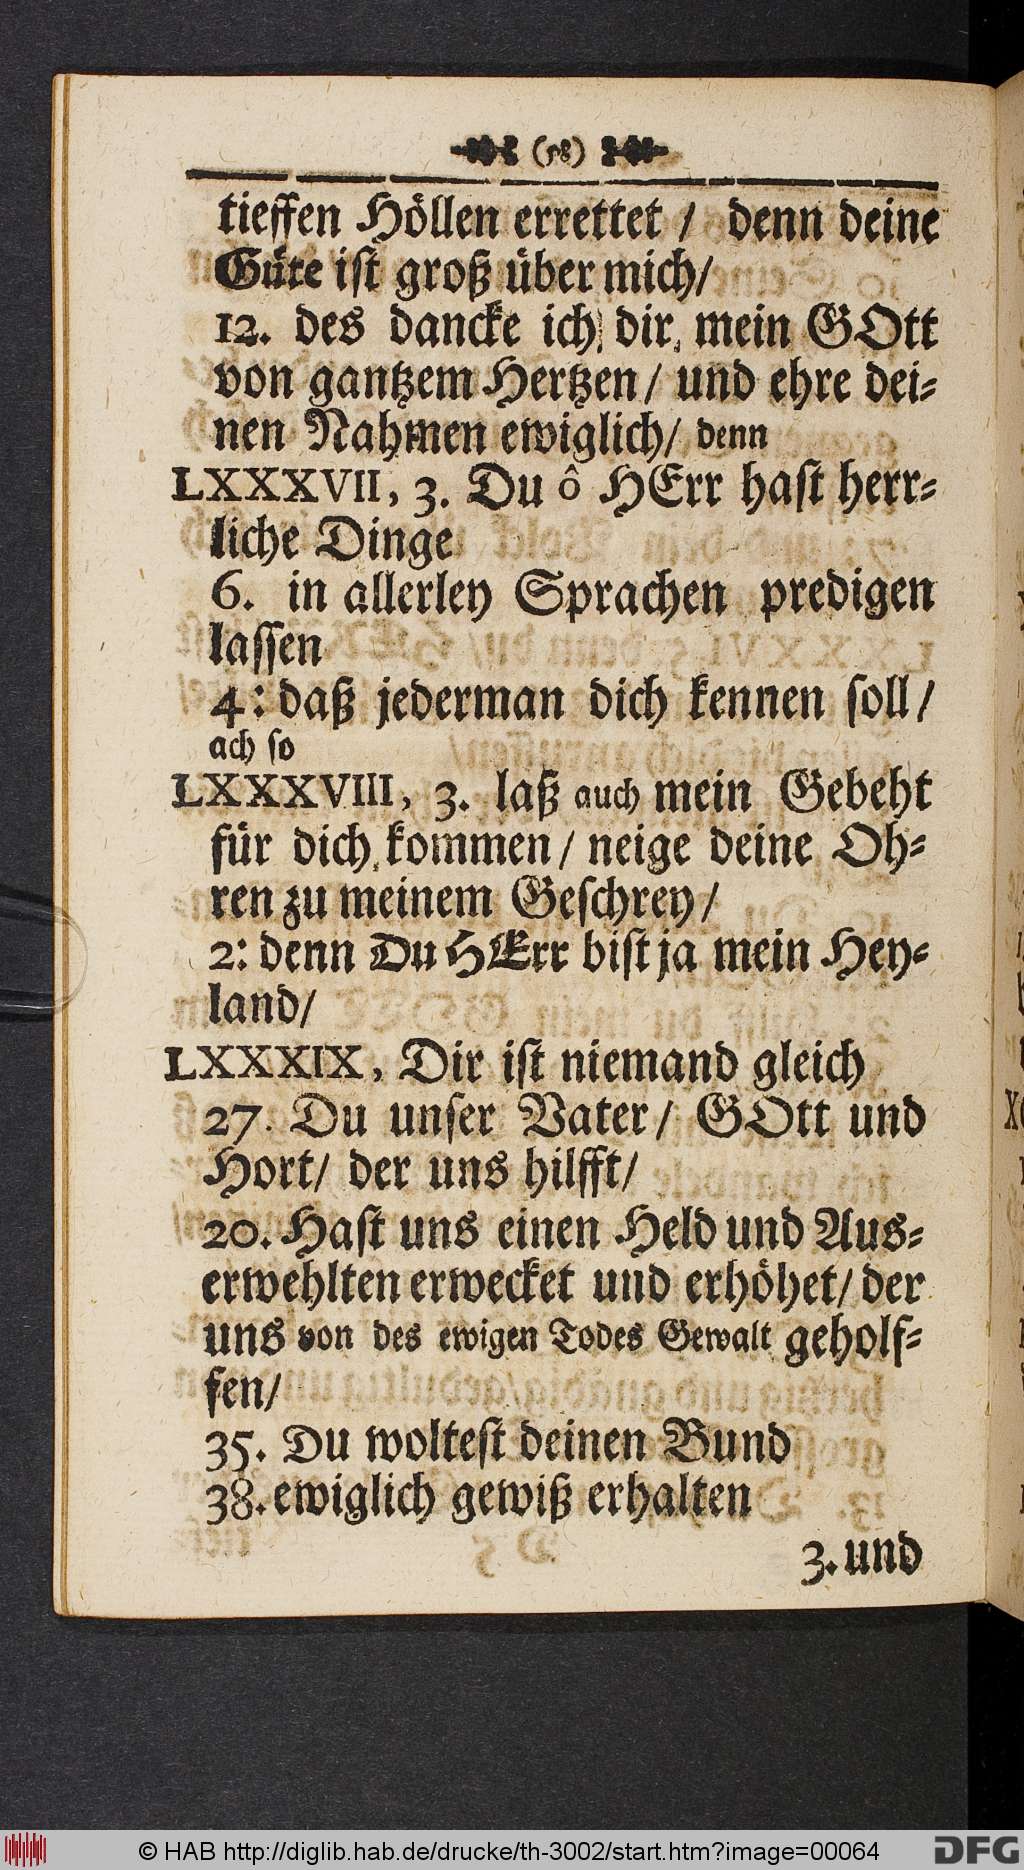 (58)
tieffen Höllen errettet / denn deine
Güte ist groß über mich/
12. des dancke ich dir, mein GOtt
von gantzem Hertzen / und ehre dei-
nen Nahmen ewiglich/ denn
LXXXVII, 3. Du ô HErr hast herr-
liche Dinge
6. in allerley Sprachen predigen
lassen
4: daß jederman dich kennen soll/
ach so
LXXXVIII, 3. laß auch mein Gebeht
für dich kommen / neige deine Oh-
ren zu meinem Geschrey /
2: denn Du HErr bist ja mein Hey-
land/
LXXXIX, Dir ist niemand gleich
27. Du unser Vater/ GOtt und
Hort/ der uns hilfft/
20. Hast uns einen Held und Aus-
erwehlten erwecket und erhöhet/ der
uns von des ewigen Todes Gewalt geholf-
fen/
35. Du woltest deinen Bund
38. ewiglich gewiß erhalten
3. und
© HAB http://diglib.hab.de/drucke/th-3002/start.htm?image=00064
DFG